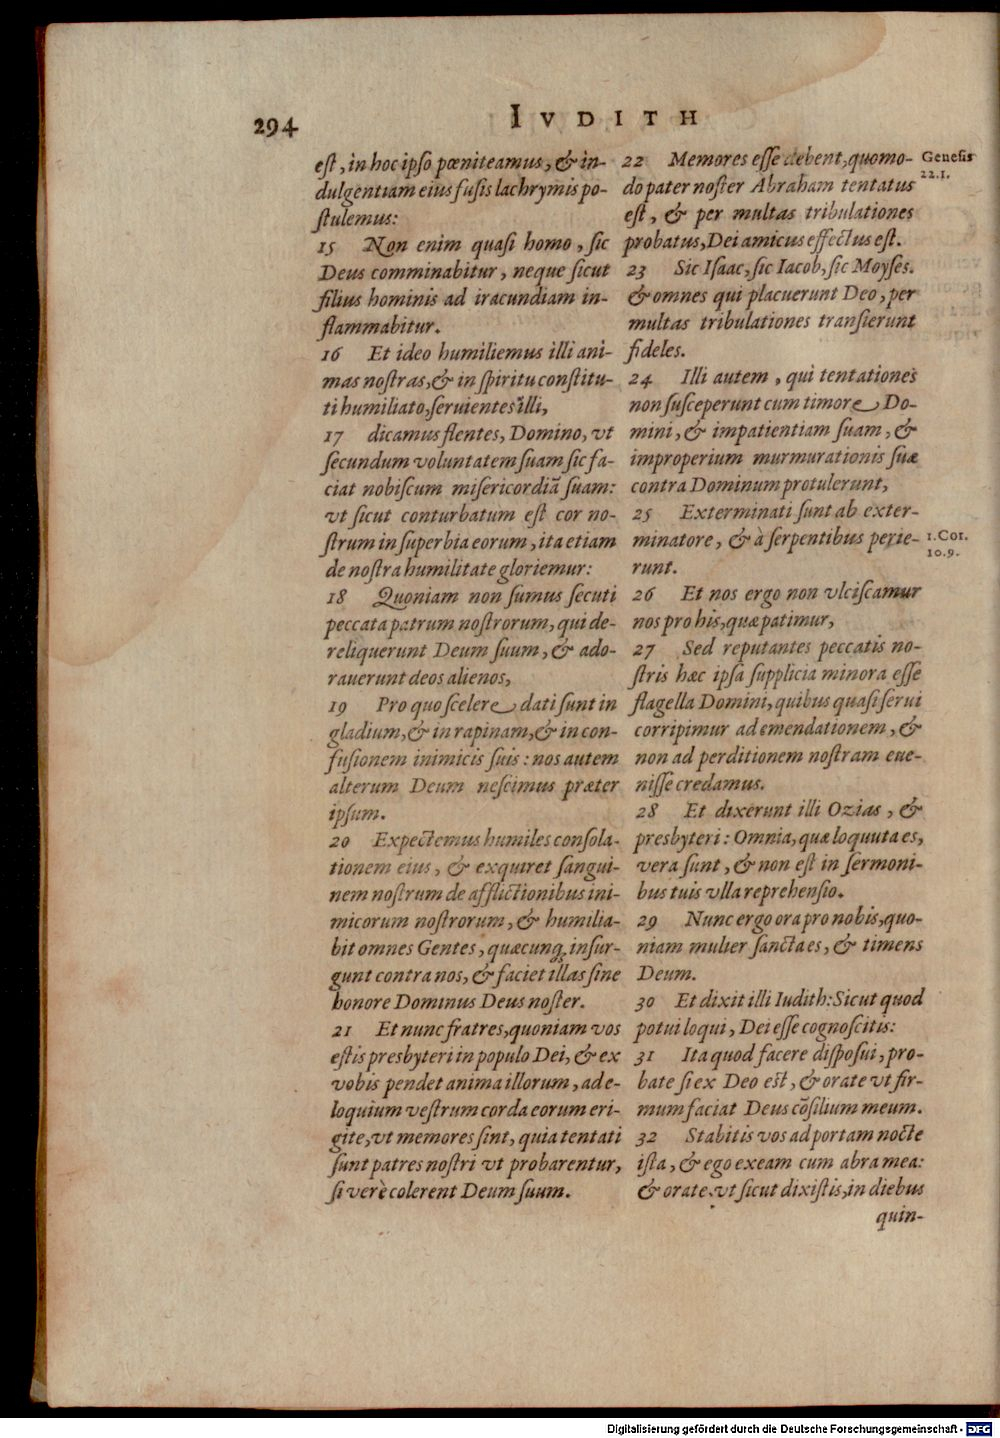 294
IVDITH
eſt, in hoc ipſo pœniteamus, & in-
dulgentiam eius fuſis lachrymis po-
ſtulemus:
15 Non enim quaſi homo, ſic
Deus comminabitur, neque ſicut
filius hominis ad iracundiam in-
flammabitur.
16 Et ideo humiliemus illi ani-
mas noſtras, & in ſpiritu conſtitu-
ti humiliato, ſeruientes illi,
17 dicamus flentes, Domino, vt
ſecundum voluntatem ſuam ſic fa-
ciat nobiſcum miſericordiã ſuam:
vt ſicut conturbatum eſt cor no-
ſtrum in ſuperbia eorum, ita etiam
de noſtra humilitate gloriemur:
18 Quoniam non ſumus ſecuti
peccata patrum noſtrorum, qui de-
reliquerunt Deum ſuum, & ado-
rauerunt deos alienos,
19 Pro quo ſcelere dati ſunt in
gladium, & in rapinam, & in con-
fuſionem inimicis ſuis: nos autem
alterum Deum neſcimus præter
ipſum.
20 Expectemus humiles conſola-
tionem eius, & exquiret ſangui-
nem noſtrum de afflictionibus ini-
micorum noſtrorum, & humilia-
bit omnes Gentes, quæcunq; inſur-
gunt contra nos, & faciet illas ſine
honore Dominus Deus noſter.
21 Et nunc fratres, quoniam vos
eſtis presbyteri in populo Dei, & ex
vobis pendet anima illorum, ad e-
loquium veſtrum corda eorum eri-
gite, vt memores ſint, quia tentati
ſunt patres noſtri vt probarentur,
ſi verè colerent Deum ſuum.
22 Memores eſſe debent, quomo-
do pater noſter Abraham tentatus
eſt, & per multas tribulationes
probatus, Dei amicus effectus eſt.
23 Sic Iſaac, ſic Iacob, ſic Moyſes.
& omnes qui placuerunt Deo, per
multas tribulationes tranſierunt
fideles.
24 Illi autem, qui tentationes
non ſuſceperunt cum timore Do-
mini, & impatientiam ſuam, &
improperium murmurationis ſuæ
contra Dominum protulerunt,
25 Exterminati ſunt ab exter-
minatore, & à ſerpentibus perie-
runt.
26 Et nos ergo non vlciſcamur
nos pro his, quæ patimur,
27 Sed reputantes peccatis no-
ſtris hæc ipſa ſupplicia minora eſſe
flagella Domini, quibus quaſi ſerui
corripimur ad emendationem, &
non ad perditionem noſtram eue-
niſſe credamus.
28 Et dixerunt illi Ozias, &
presbyteri: Omnia, quæ loquuta es,
vera ſunt, & non eſt in ſermoni-
bus tuis vlla reprehenſio.
29 Nunc ergo ora pro nobis, quo-
niam mulier ſancta es, & timens
Deum.
30 Et dixit illi Iudith: Sicut quod
potui loqui, Dei eſſe cognoſcitis:
31 Ita quod facere diſpoſui, pro-
bate ſi ex Deo eſt, & orate vt fir-
mum faciat Deus cõſilium meum.
32 Stabitis vos ad portam nocte
iſta, & ego exeam cum abra mea:
& orate vt ſicut dixiſtis, in diebus
quin-
Geneſis
22.1.
1.Cor.
10.9.
Digitalisierung gefördert durch die Deutsche Forschungsgemeinschaft - DFG